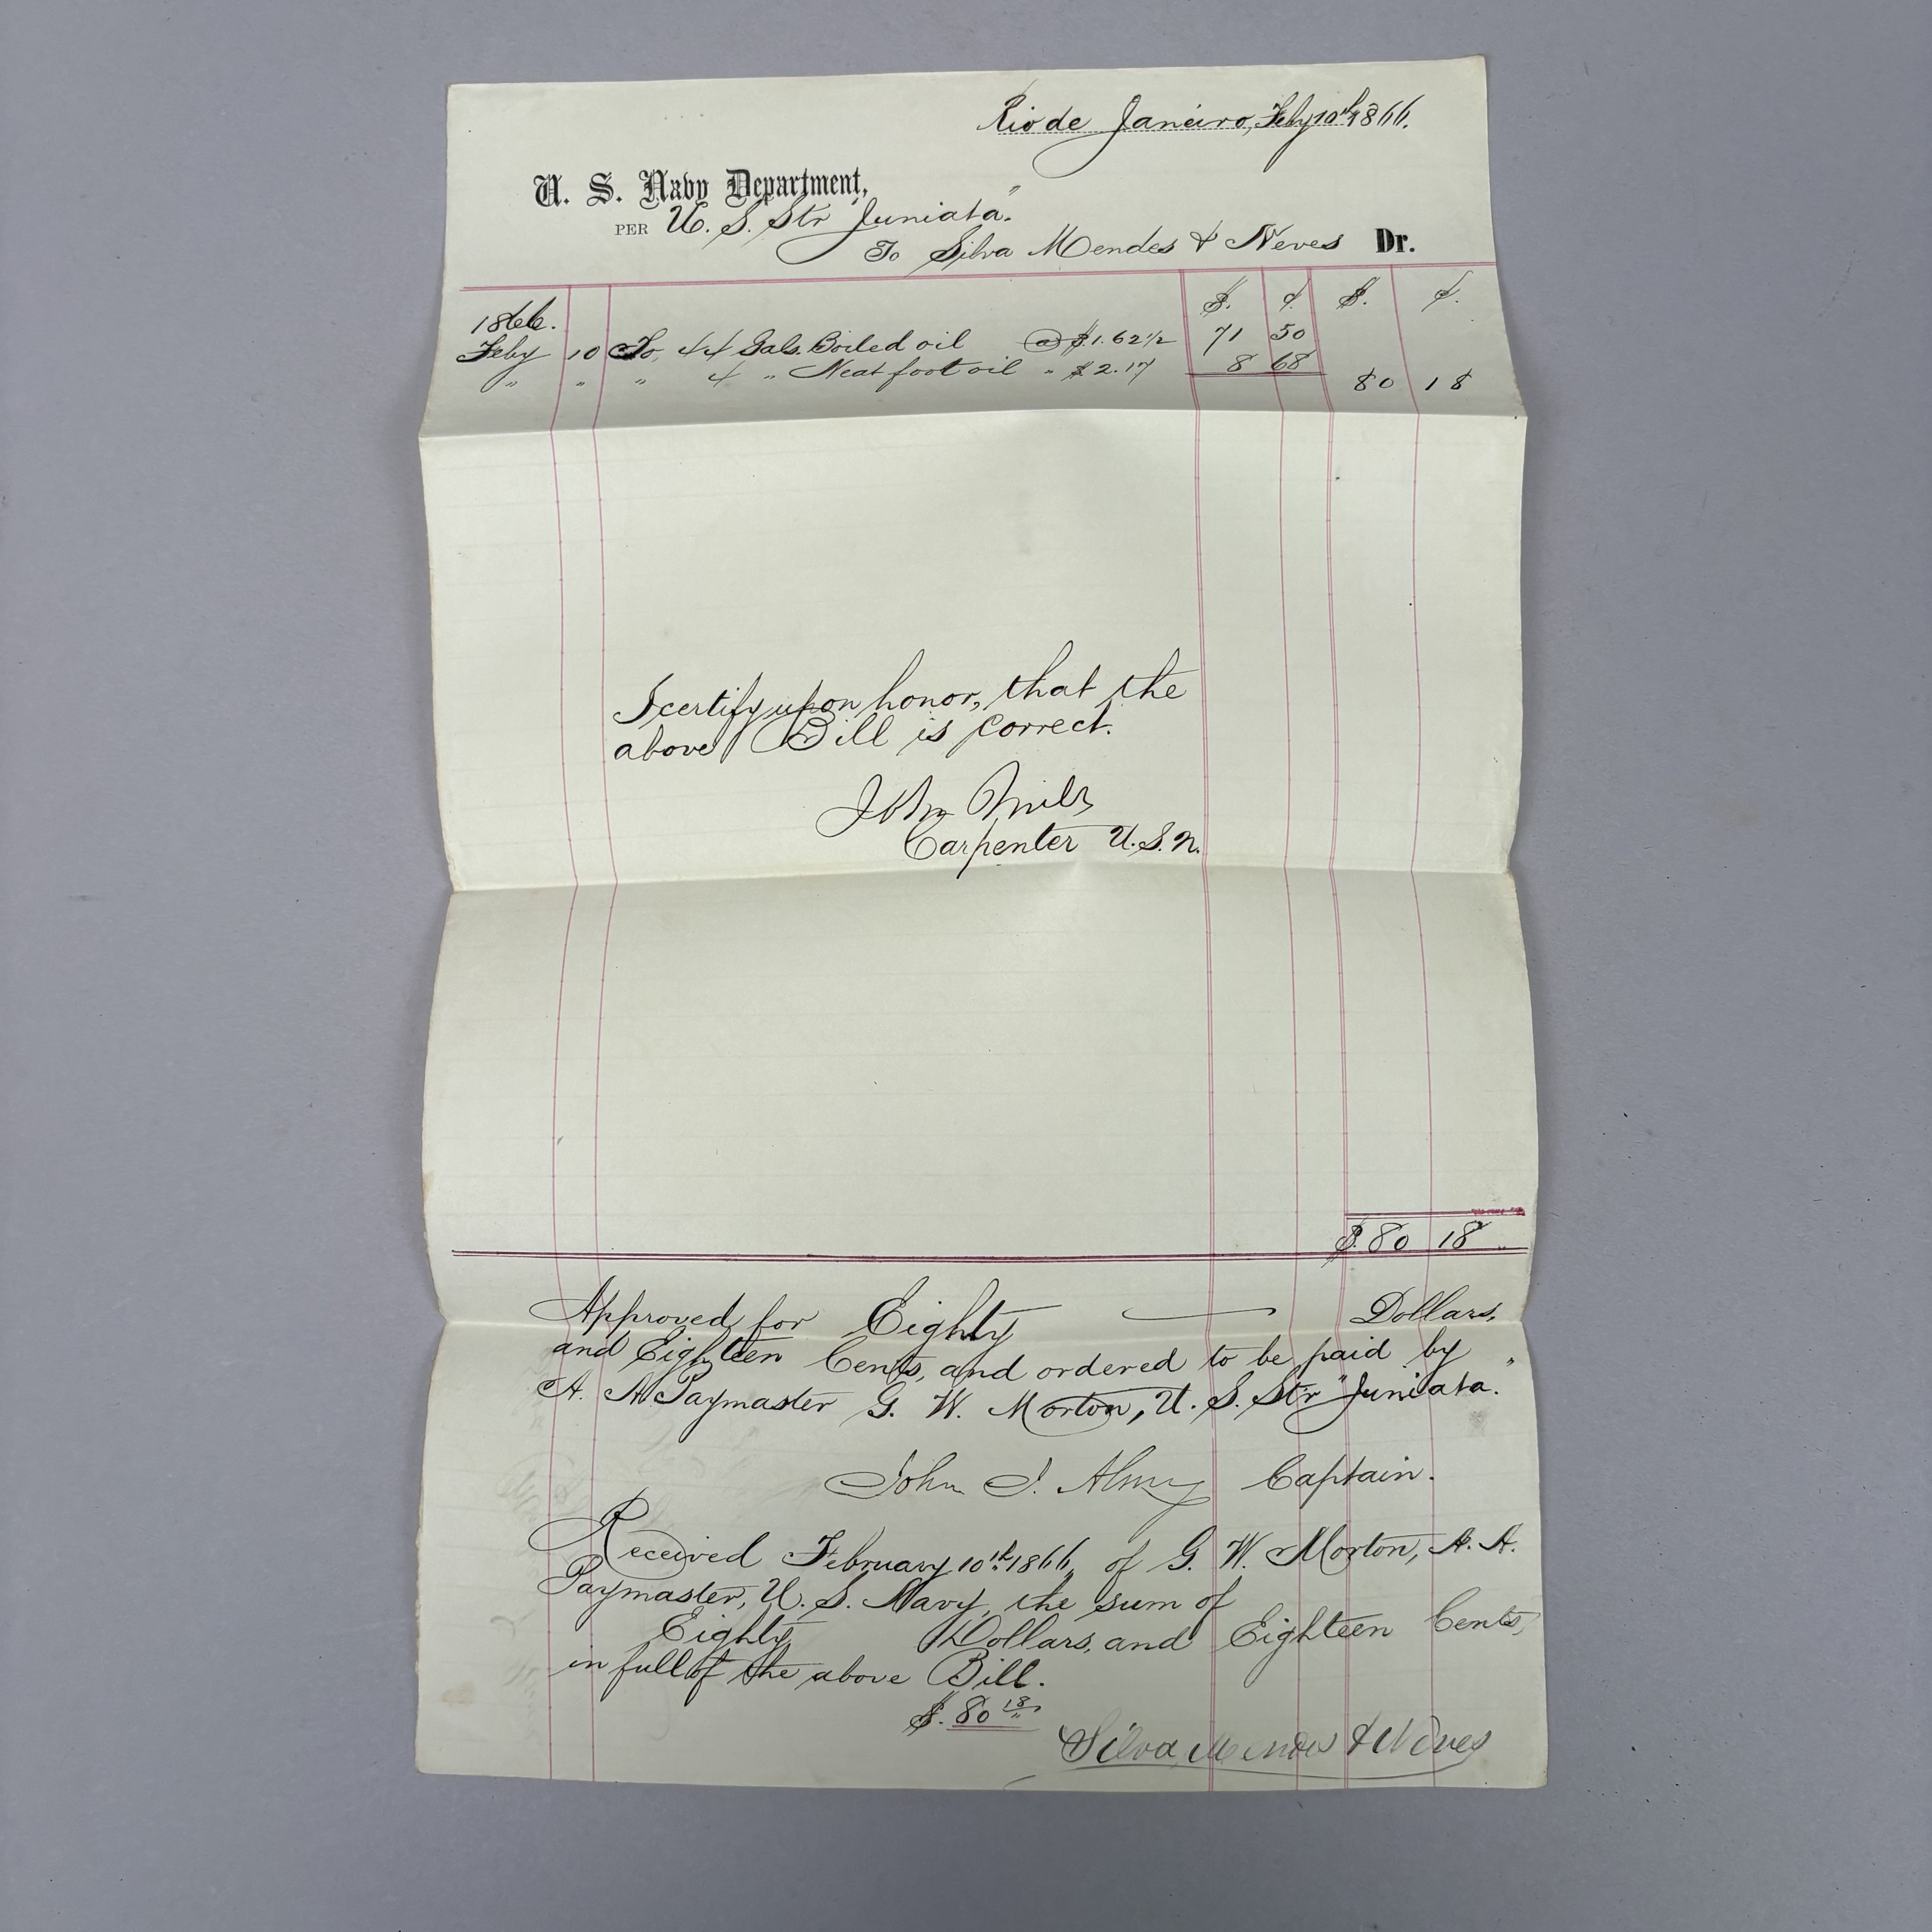 Rio de Janeiro, Feby 10th 1866.
U. S. Navy Department,
PER U. S. Str "Juniata."
To Silva Mendes & Neves Dr.
$. ¢. $. ¢.
1866.
Feby 10 To, 44 Gals. Boiled oil @ $1.62 1/2 71 50
" " " 4 " Neat foot oil " $2.17 8 68 80 18
I certify upon honor, that the
above Bill is correct.
John Mills
Carpenter U.S.N.
$.80 18
Approved for Eighty Dollars,
and Eighteen Cents, and ordered to be paid by
A. A. Paymaster G. W. Morton, U. S. Str "Juniata."
John J. Almy Captain.
Received February 10th 1866, of G. W. Morton, A. A.
Paymaster, U. S. Navy, the sum of
Eighty Dollars, and Eighteen Cents,
in full of the above Bill.
$. 80 18/"
Silva, Mendes & Neves